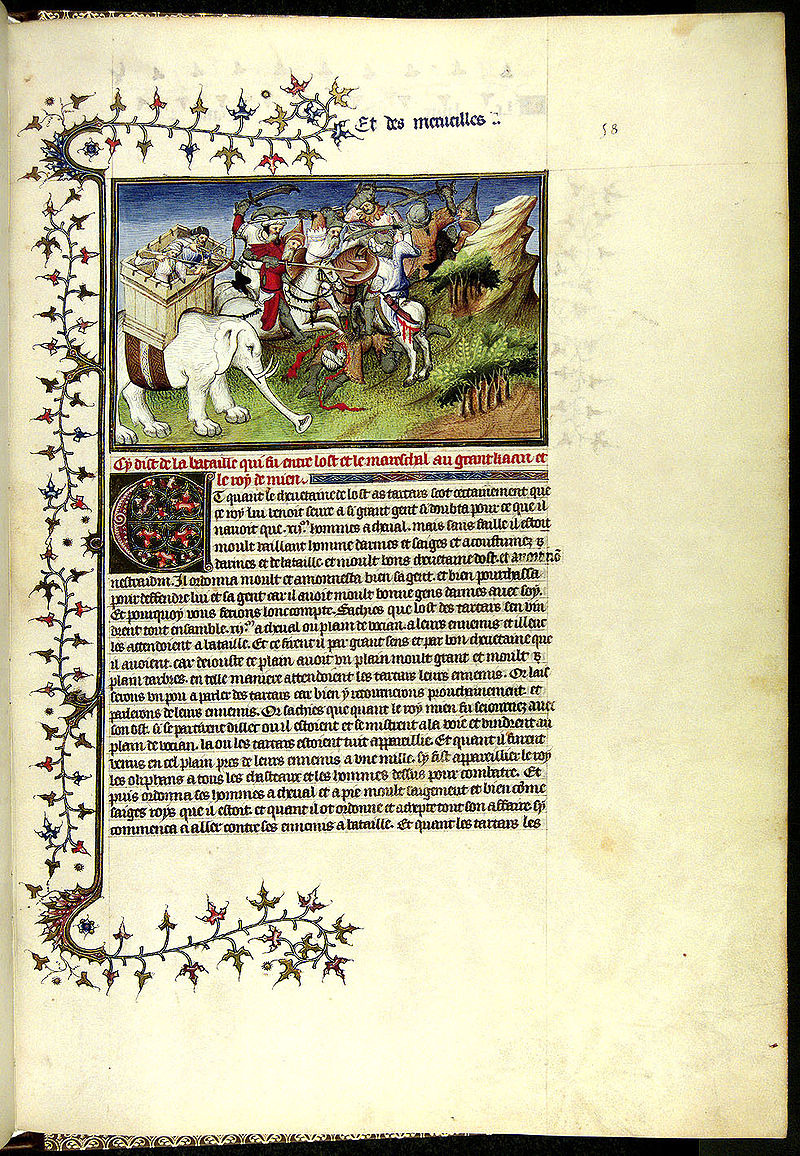 Et des merueilles
58
Cy dist de la bataille qui fu entre lost et le mareschal au grant kaan et
le roy de mien.
Et quant le cheuetaine de lost as tartars scot certainement que
ce roy lui venoit seure a si grant gent si doubta pour ce que il
nauoit que .xij.m hommes a cheual. mais sans faille il estoit
moult vaillant homme darmes et saiges et acoustumez
darmes et de bataille et moult bons cheuetaine dost. et
Il ordonna moult et amonnesta bien sa gent. et bien pourchassa
pour deffendre lui et sa gent car il auoit moult bonne gens darmes auec soy.
Et pourquoy vous feroins loncompte. Sachies que lost des tartars sen vin
drent tout ensamble .xij.m a cheual ou plain de vocian. a leurs ennemis et illeuc
les attendoient a bataille. Et ce firent il par grant sens et par bon cheuetaine que
il auoient. car deiouste ce plain auoit vn plain moult grant et moult
plain darbres. en telle maniere attendoient les tartars leurs ennemis. Or lais
serons vn pou a parler des tartars car bien y retournerons prouchainement. et
parlerons de leurs ennemis. Or sachies que quant le roy mien fu seiournez auec
son ost. si se partirent dillec ou il estoient et se mistrent a la voie et vindrent au
plain de vocian. la ou les tartars estoient tuit appareillie. Et quant il furent
venus en cel plain pres de leurs ennemis a vne mille. sy fist appareillier le roy
les oliphans a tous les chasteaux et les hommes dessus pour combatre. Et
puis ordonna ses hommes a cheual et a pie moult saigement et bien come
saiges roys que il estoit. et quant il ot ordonne et tout son affaire sy
commenca a aller contre ses ennemis a bataille. Et quant les tartars les